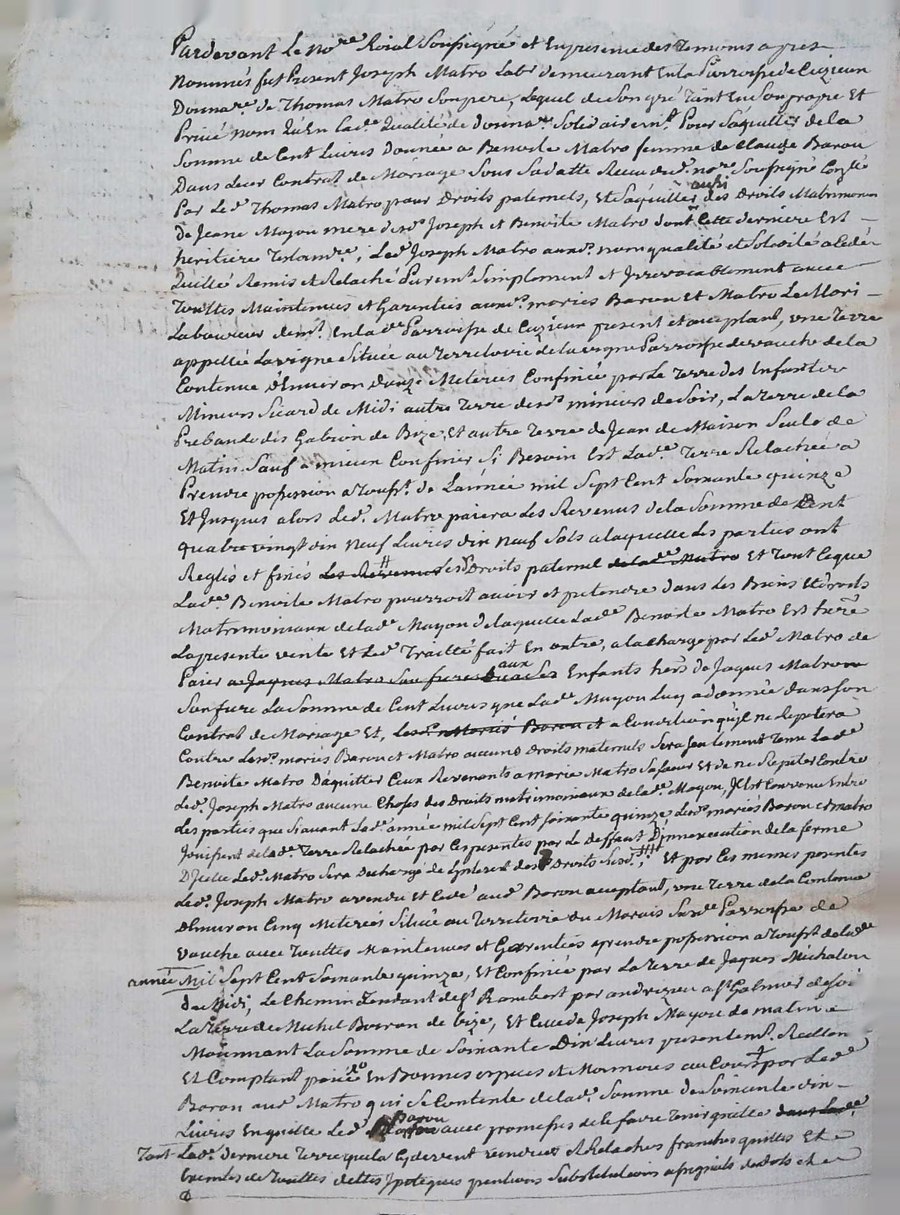 Pardevant Le No.re Roial Soussigné et En presence des Temoins apres
Nommés fut Present Joseph Matro Lab.r demeurant En la Parroisse de Cuzieu
Donna.re de Thomas Matro Son pere, Lequel de Son gré Tant En Son propre Et
Privé Nom Qu'En lad.e Qualité de Donna.re Solidairem.t Pour S'aquiller de la
Somme de Cent Livres Donnée a Benoite Matro femme de Claude Barou
Dans Leur Contrat de Mariage Sous Sa datte Recu dud. no.re Soussigné
Par Led.t Thomas Matro pour Droits paternels, Et S'aquiller aussi des Droits Matrimoniau
de Jeane Mayou mere desd.s Joseph et Benoite Matro dont Cette derniere Est
heritiere ; Led.t Joseph Matro auxd. nom qualité et Solidité a Cedé
Quitté Remis et Relaché Purem.t Simplement et Irrevocablement avec
Touttes Maintenues et Garenties auxd.s mariés Barou Et Matro Le Mari
Laboureur dem.t En lad.e Parroisse de Cuzieu present et acceptant, une Terre
appellée Lavigne Située au Territoire de la vigne Parroisse de vauche de la
Contenue D'Environ Metérées Confinée par Le Terre des Enfants
Mineurs Sicard de Midi autre Terre desd.s mineurs de Soir, La Terre de la
Prebande dis Gabrion de Bize, Et autre Terre de Jean de Maison Seule de
Matin Sauf a mieux Confiner Si Besoin Est Lad.e Terre Relachée a
Prendre possession a Tous.ts de L'année mil Sept Cent Soixante quinze
Et Jusques alors Led.t Matro paiera Les Revenus de la Somme de Cent
quatre vingt dix Neuf Livres dix Neuf Sols a laquelle Les parties ont
Reglés et fixés Les Revenus lesd.s Droits paternel de lad.e Matro Et Tout Ce que
Lad.e Benoite Matro pourroit avoir et pretendre dans Les Biens Et droits
Matrimoniaux de lad.e Mayou de laquelle Lad.e Benoite Matro Est here
La presente vente Et Led.t Traitté fait En outre, a la Charge par Led.t Matro de
Paier a Jaques Matro Son frere aux Enfants hers. de Jaques Matro
Son frere La Somme de Cent Livres que Lad.e Mayou Luy a donnée dans Son
Contrat de Mariage Et, Lesd.s Mariés Barou et a Condition qu'il ne Repetera
Contre Lesd.s mariés Barou et Matro aucuns Droits maternels Sera Seulement Tenu Lad.e
Benoite Matro D'aquitter Ceux Revenants a Marie Matro Sa Soeur Et de ne Repeter Contre
Led.t Joseph Matro aucune Choses des Droits matrimoniaux de lad.e Mayou, Il Est Convenu Entre
Les parties que Si avant Lad.e année mil Sept Cent Soixante quinze Lesd.s mariés Barou et matro
Jouissent de lad.e Terre Relachée par Ces presentes par Le deffaut D'innexecution de la ferme
D'Icelle Led.t Matro Sera Dechargé de L'interest desd. Droits Susd.s Et par Ces memes presentes
Led.t Joseph Matro a vendu Et Cedé aud.t Barou acceptant, une Terre de la Contenue
D'Environ Cinq Meterées Située au Territoire du Marais Sud.e Parroisse de
Vauche avec Touttes Maintenues et Garenties a prendre possession a Tous.ts de lad.e
année Mil Sept Cent Soixante quinze, Et Confinée par La Terre de Jaques Michalon
de Midi, Le Chemin Tendant de S.t Rambert par andrezieu a S.t Galmier de Soir
La Terre de Michel Boiron de bize, Et Celle de Joseph Mayou de matin
Moiennant La Somme de Soixante Dix Livres presentem.t Reellem
Et Comptant paiée En Bonnes especes et Monnoies au Cours par Led.t
Barou aud.t Matro qui Se Contente de lad.e Somme de Soixante dix
Livres En quitte Led.t Barou avec promesses de le faire Tenir quitte dans Lad.e
Tant Lad.e derniere Terre que la Cydevent vendues et Relachés franches quittes Et
Exemptes de Touttes dettes Ipoteques pentions Substitutions